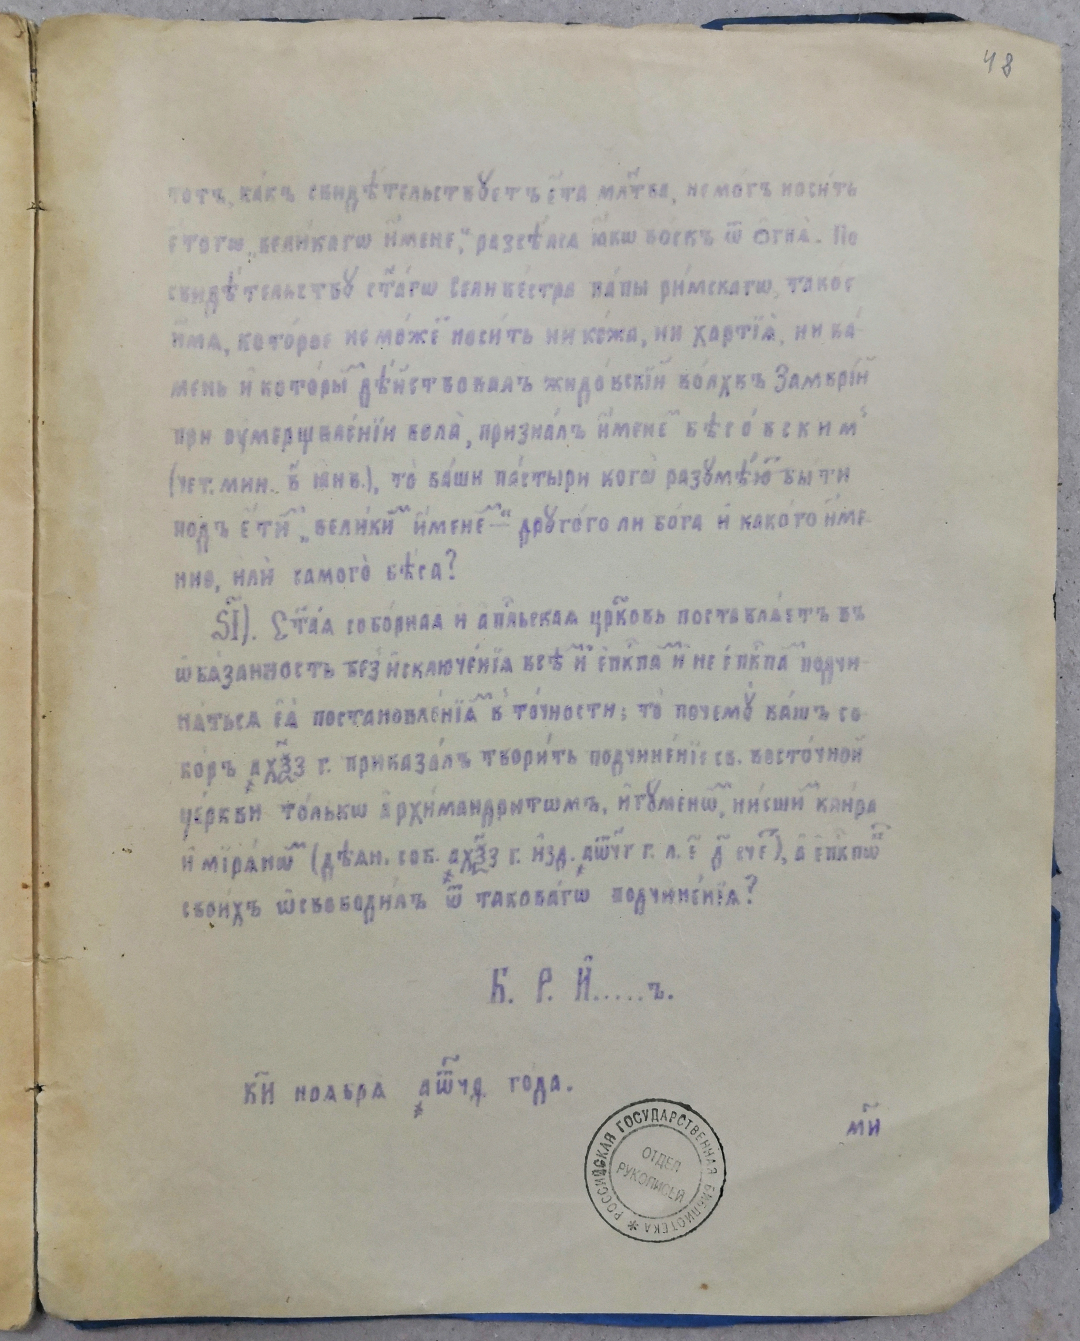 48
тотъ, ка́къ свидѣ́тельствꙋетъ є҆́та мл҃тва, не мо́гъ носи́ть
є҆́тогѡ „вели́кагѡ и҆́мене,“ разсѣ́ѧсѧ ꙗ҆́кѡ во́скъ ѿ ѻ҆гнѧ̀. По
свидѣ́тельствꙋ ст҃а́гѡ Селиве́стра па́пы ри́мскагѡ, тако́е
и҆́мѧ, кото́рое не мо́же носи́ть ни ко́жа, ни хартїѧ̀, ни ка́-
мень и҆ кото́ры дѣ́йствовалъ жидо́вскїй во́лхвъ Замврі́й
при оумерщвле́нїи вола̀, призна́лъ и҆́мене бѣсо́вским
(чет. мин. в҃ ꙗнв.), то̀ ва́ши па́стыри кого̀ разꙋмѣ́ю бы́ти
подъ є҆́ти „вели́ки и҆́мене“ дрꙋго́го ли бо́га и҆ како́го и҆́ме-
нно, и҆лѝ самого̀ бѣ́са?
Ѕ҃І). Ст҃а́ѧ собо́рнаѧ и҆ а҆пⷭ҇льскаѧ цр҃ковь поставлѧ́етъ въ
ѡ҆бѧ́занность без̾ и҆сключе́нїѧ всѣ и҆ є҆пⷭ҇кпа и҆ не є҆пⷭ҇кпа подчи-
нѧ́тьсѧ є҆ѧ̀ постановле́нїѧ в то́чности; то̀ почемꙋ̀ ва́шъ со-
бо́ръ ҂ахѯ҃з г. приказа́лъ твори́ть подчине́нїе св. восто́чной
це́ркви то́лькѡ а҆рхїмандри́тѡмъ, и҆гꙋ́менѡ, ни́сши кли́ра
и҆ мїрѧ́нѡ (дѣѧн. соб. ҂ахѯ҃з г. и҆зд. ҂аѿ҃чг г. л. є҃ д҃ сче), а҆ є҆пⷭ҇кпѡ
свои́хъ ѡ҆свободи́лъ ѿ такова́гѡ подчине́нїѧ?
К. Р. И҆.....ъ.
к҃и ноѧбрѧ ҂аѿ҃чд года.
м҃и
РОССИЙСКАЯ ГОСУДАРСТВЕННАЯ БИБЛИОТЕКА *
ОТДЕЛ
РУКОПИСЕЙ